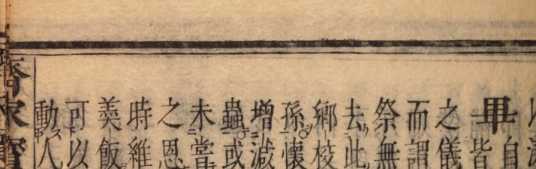 畢自
皆
之儀
而謂
祭無
去此
鄉校
孫懷
增減
蟲或
未嘗
之恩
時維
羹飯
可以
動人
齊家寶